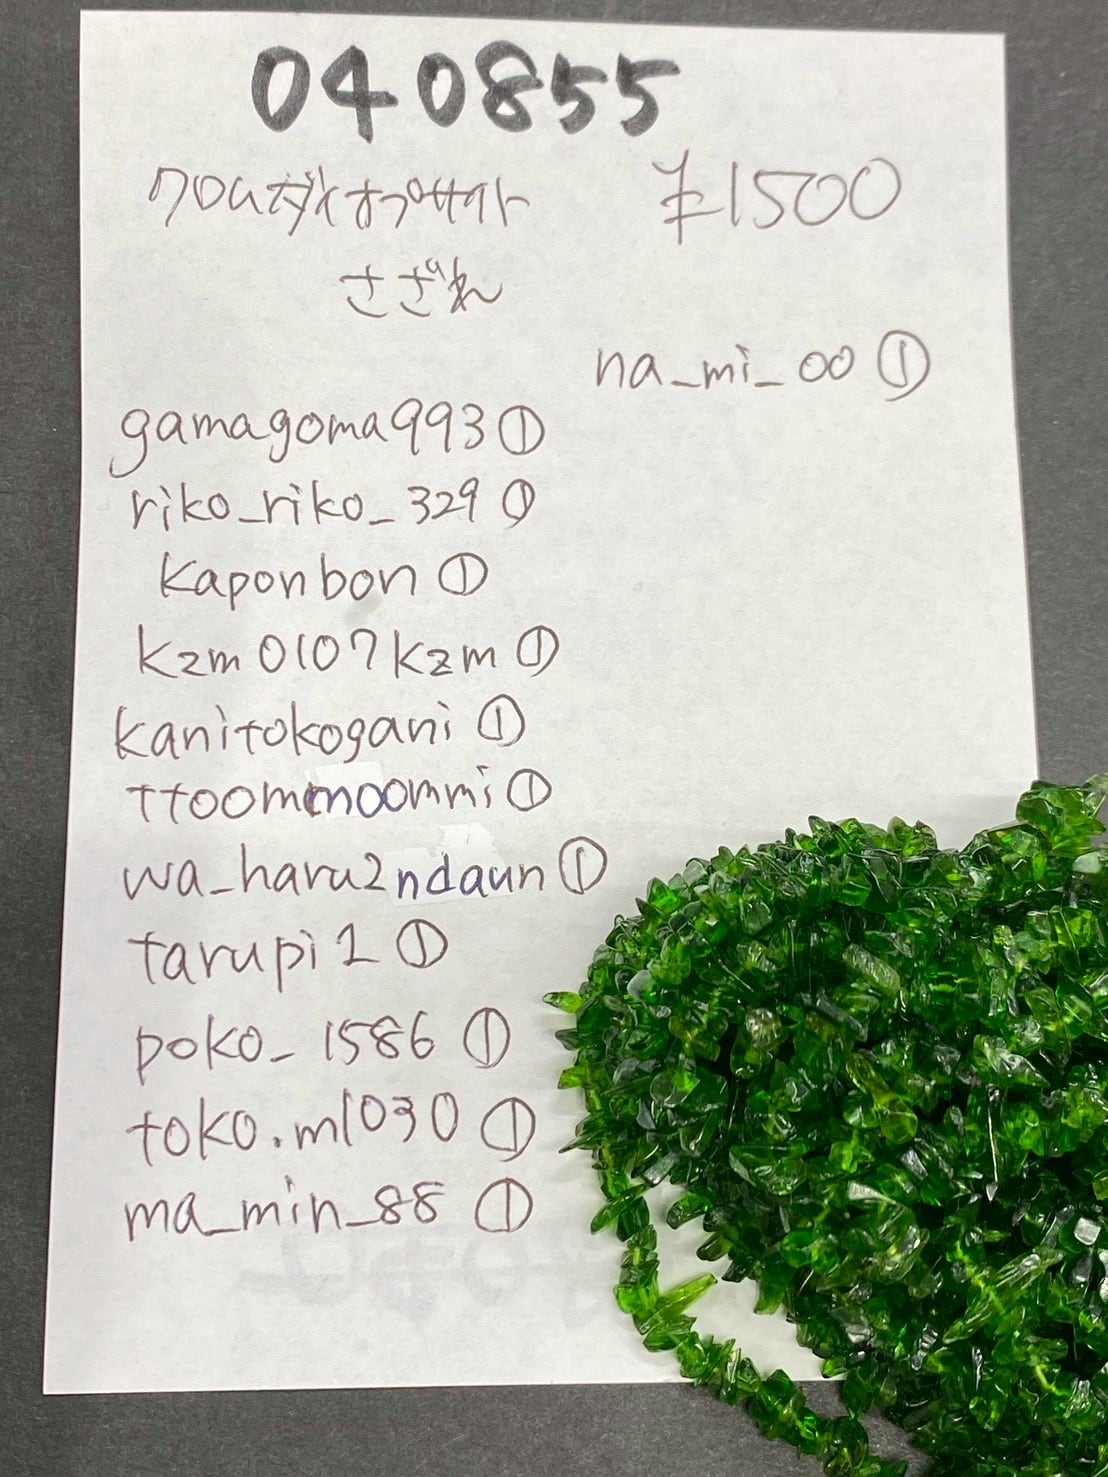 040855
クロムダイオプサイト ¥1500
さざれ
na_mi_00 ①
gamagoma993 ①
riko_riko_329 ①
kaponbon ①
kzm0107kzm ①
kanitokogani ①
ttoommoommi ①
wa_haru2ndaun ①
tarupi1 ①
poko_1586 ①
toko.m1030 ①
ma_min_88 ①